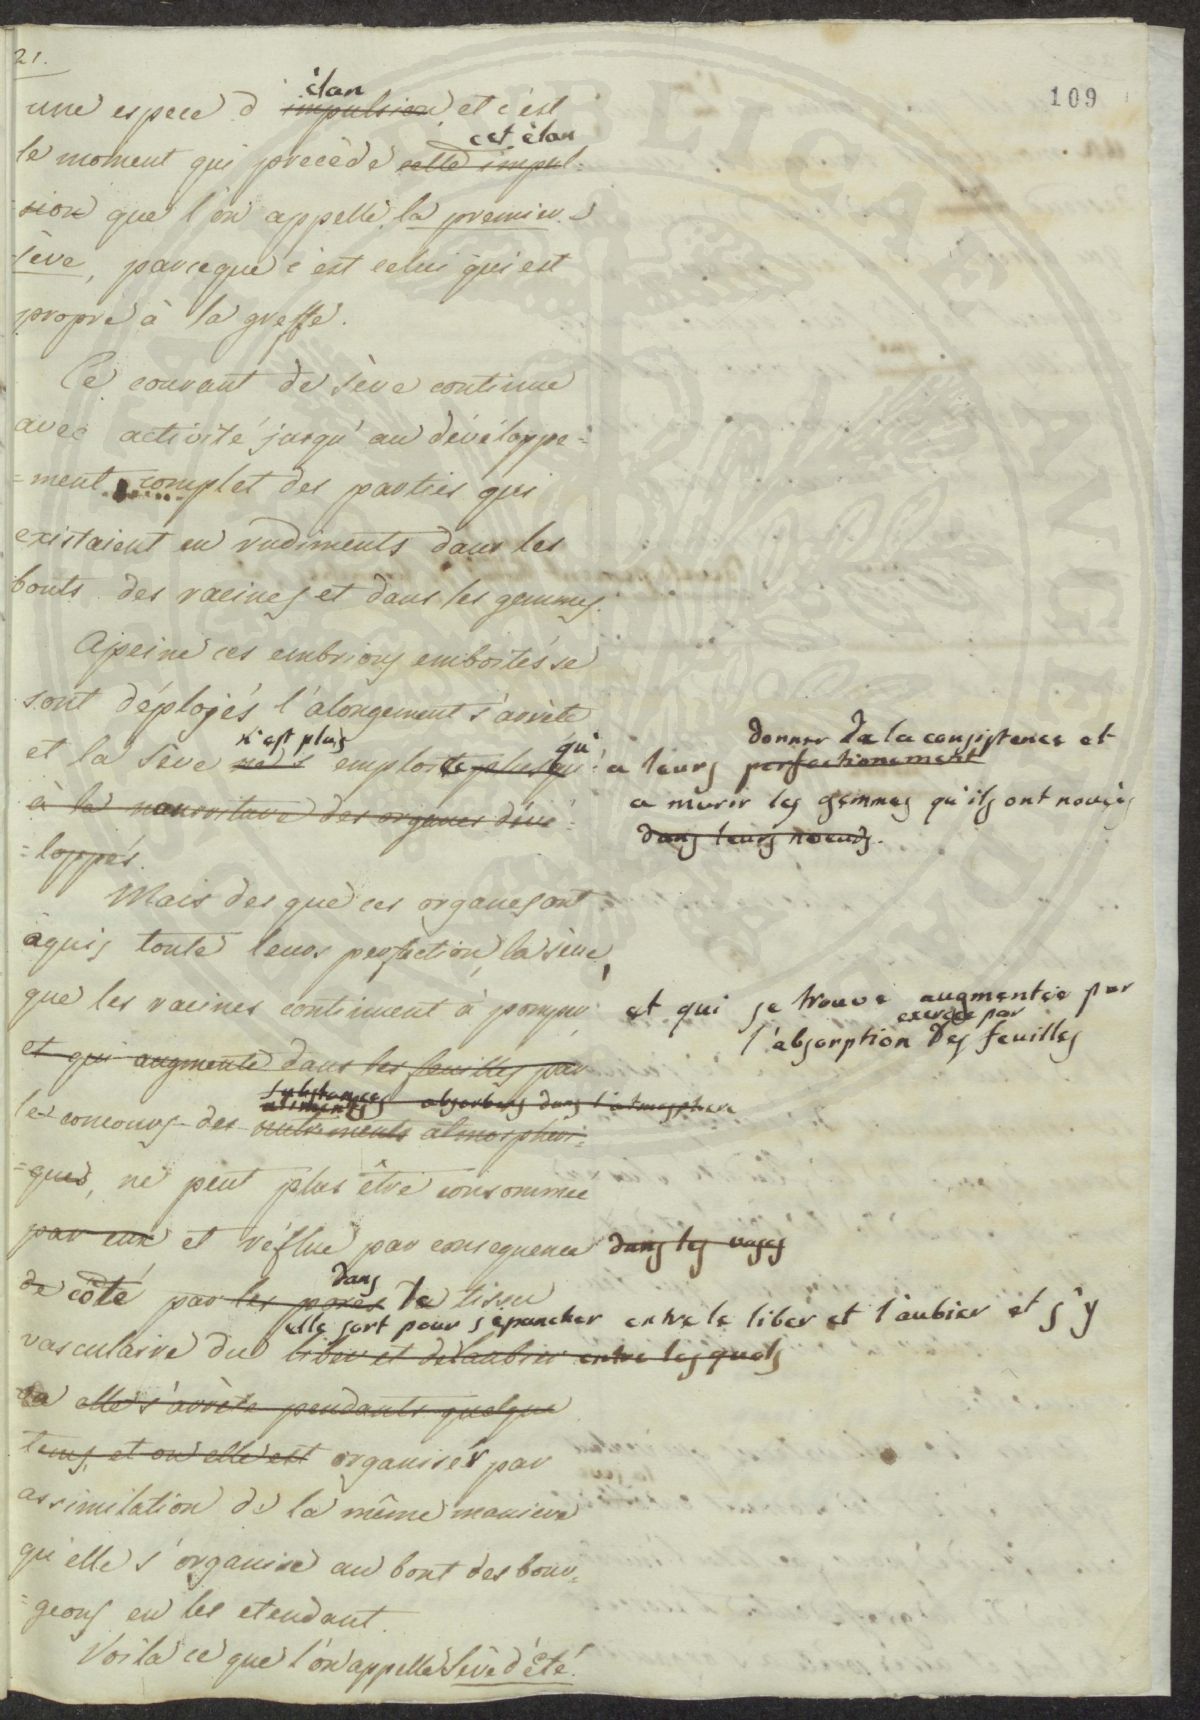 21.
109
élan
une espece d impulsion, et c'est
cet élan
le moment qui precède cette impul-
sion que l'on appelle la premiere
sève, parceque c'est celui qui est
propre à la greffe.
Ce courant de sève continue
avec activité jusqu'au dévéloppe-
=ment complet des parties qui
existaient en rudiments dans les
bouts des racines et dans les gemmes.
Apeine ces embrions emboités se
sont déploiés l'alongement s'arrête
n'est plus qu'
donner de la consistence et
et la sève ne s' emploie plus qu'
a leurs perfectionement
à la nourriture des organes déve-
a murir les gemmes qu'ils ont nouées
=loppés.
dans leurs noeuds.
Mais des que ces organes ont
aquis toute leurs perfection, la sève,
que les racines continuent à pomper
et qui se trouve augmentée par
exercée par
l'absorption des feuilles
et qui augmente dans les feuilles par
substances
aliments absorbés dans l'atmosphere
le concours des nutriments atmospheri-
=ques, ne peut plus être consommée
par eux et réflue par consequence dans les vases
dans
de côté par les pores le tissu
elle sort pour s'épancher entre le liber et l'aubier et s'y
vasculaire du liber et de l'aubier entre les quels
elle s'arrête pendants quelque
tems, et ou elle est organiser par
assimilation de la même maniere
qu'elle s'organise au bout des bour-
=geons en les etendant.
Voila ce que l'on appelle Sève d'été.